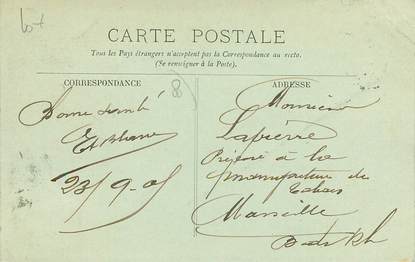 CARTE POSTALE
Tous les Pays étrangers n'acceptent pas la Correspondance au recto.
(Se renseigner à la Poste).
CORRESPONDANCE
Bonne santé
23/9-05
ADRESSE
Monsieur
Lapierre
Préposé à la
manufacture de
Tabacs
Marseille
B du Rh